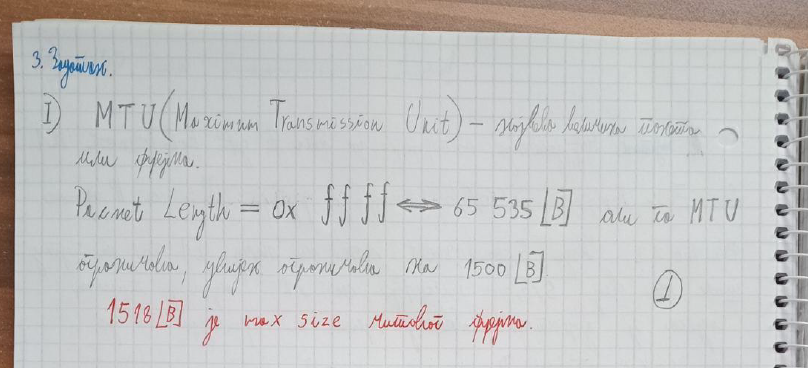 3. Задатак.
I) MTU (Maximum Transmission Unit) – највећа величина пакета
или фрејма.
Packet Length = 0x ffff ⟺ 65 535 [B] али то MTU
ограничава, увијек ограничава на 1500 [B]
1
1518 [B] је max size читавог фрејма.